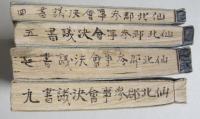 仙北郡参事會決議書四
仙北郡参事會決議書五
仙北郡参事會決議書七
仙北郡参事會決議書九